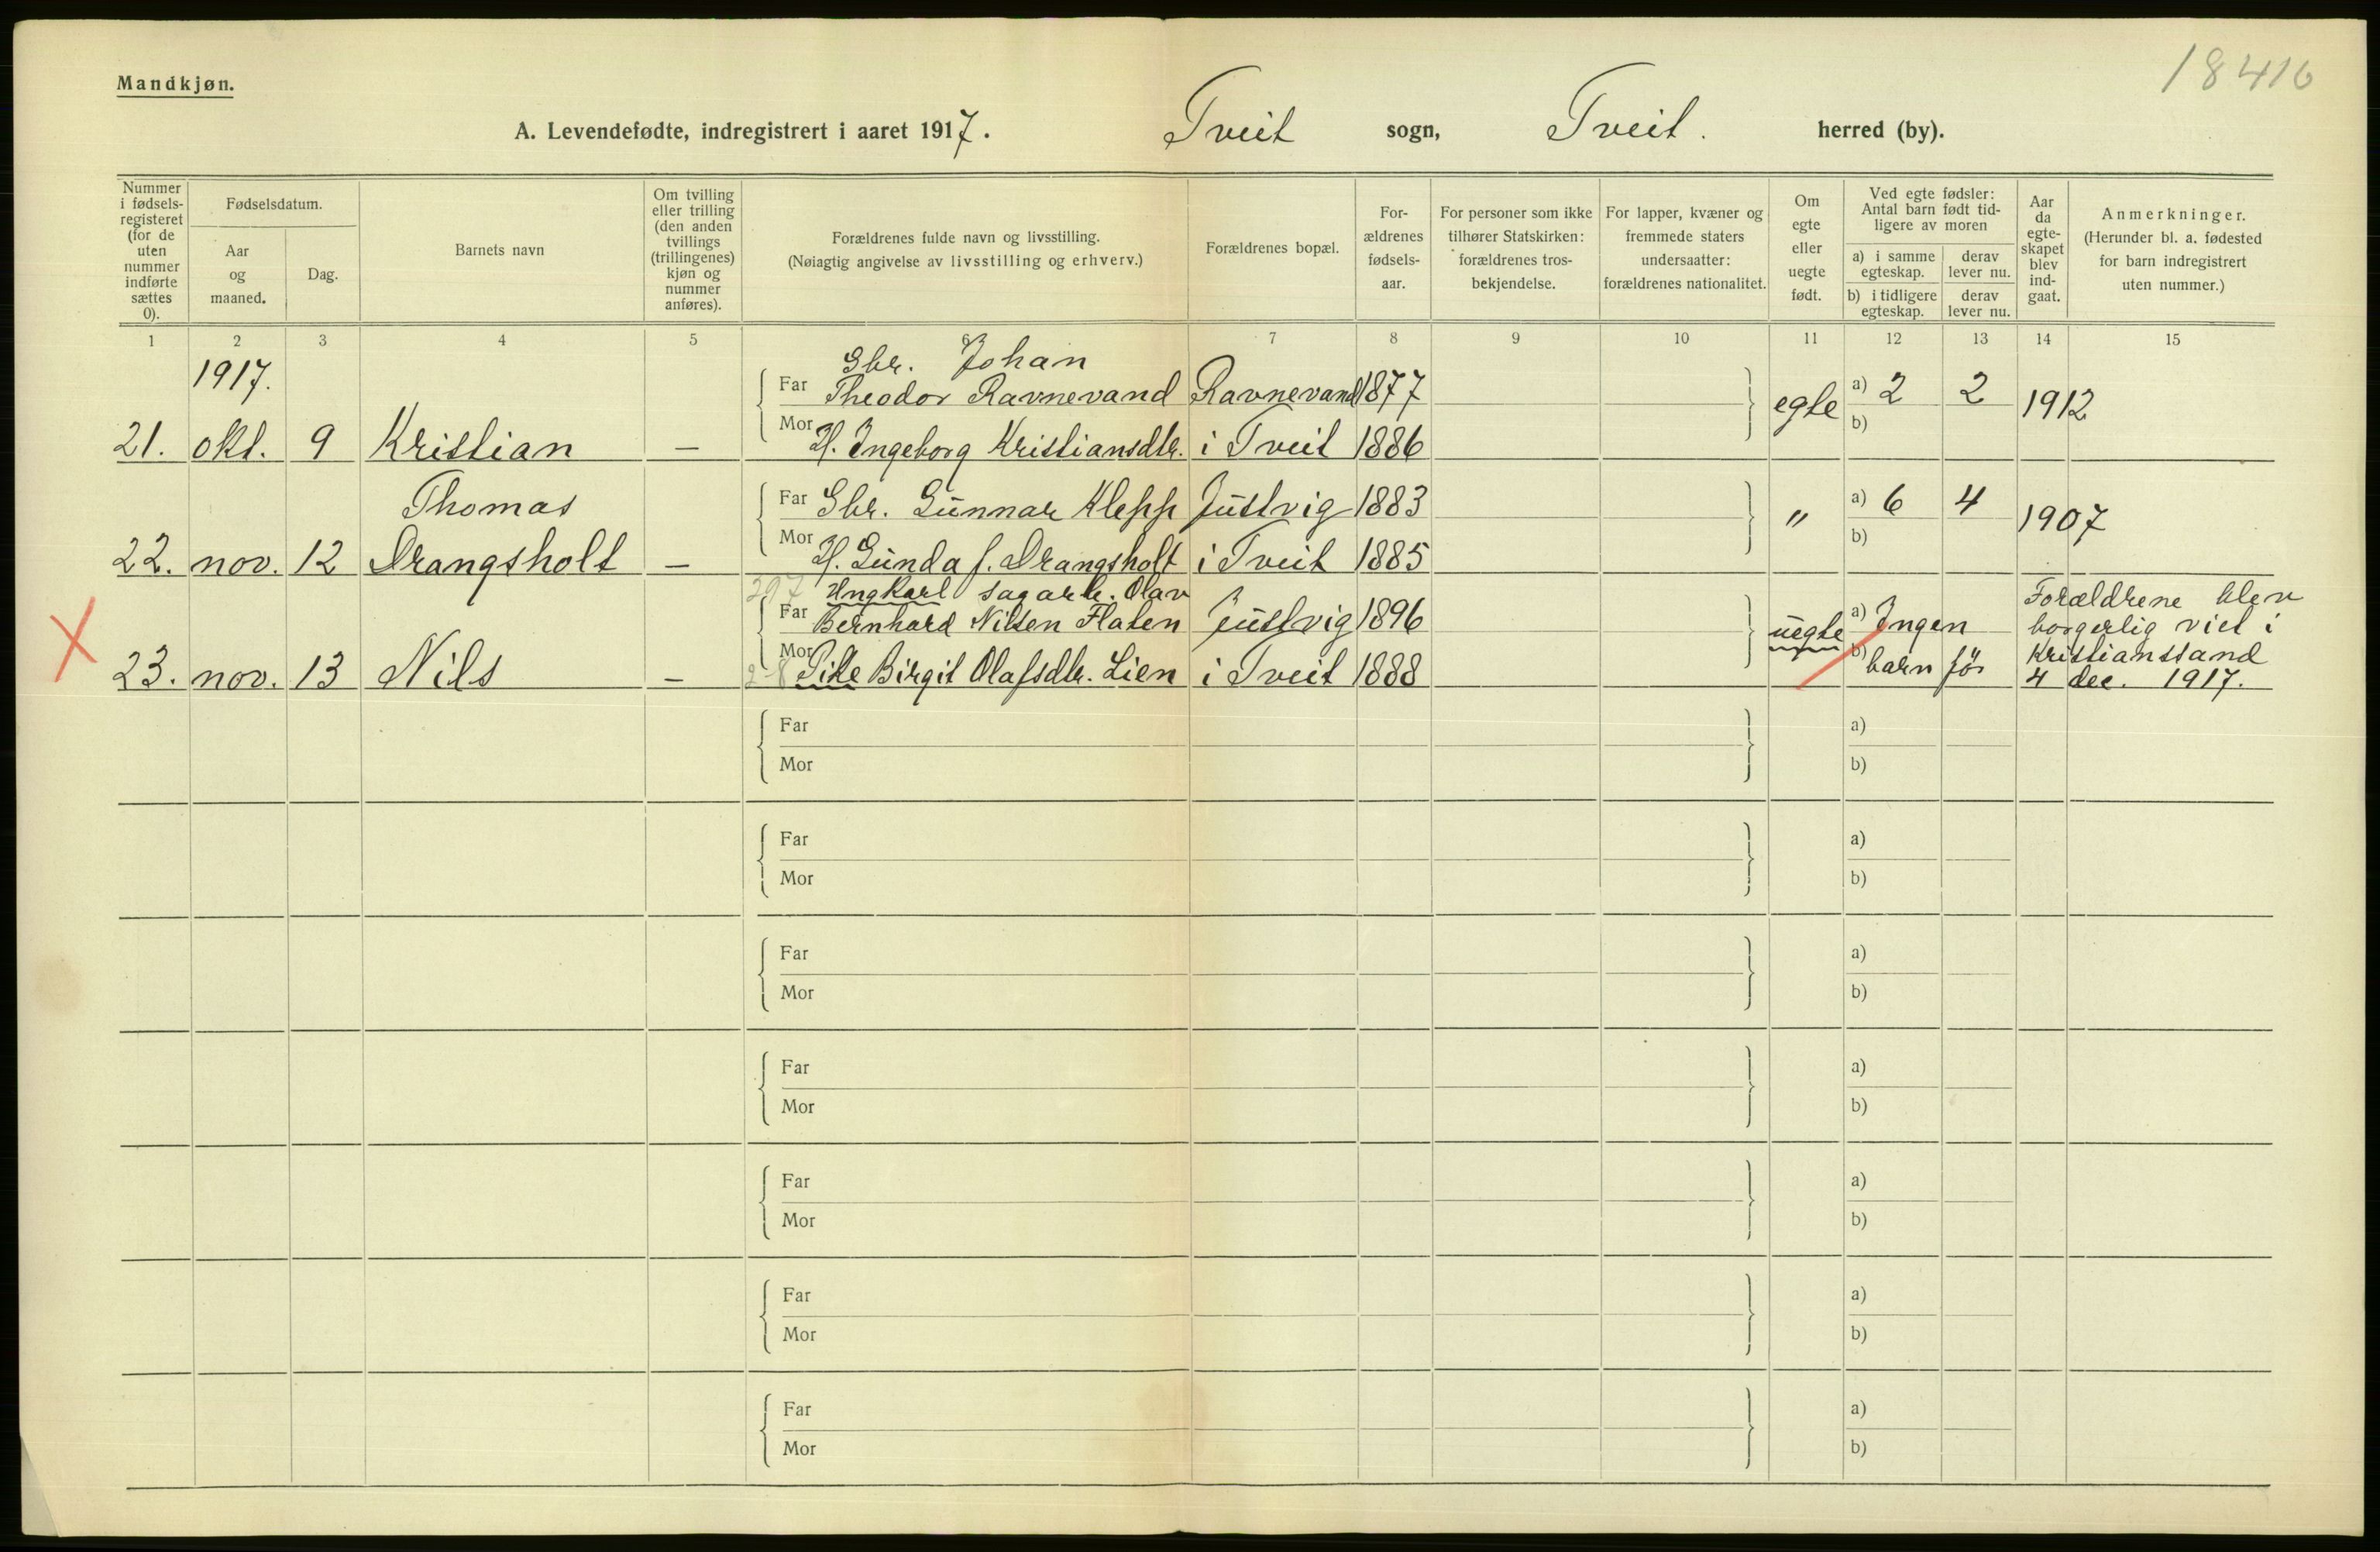 18410
Mandkjøn.
A. Levendefødte, indregistrert i aaret 1917. Tveit sogn, Tveit. herred (by).
Nummer i fødsels-registeret (for de uten nummer indførte sættes 0).
Fødselsdatum.
Aar og maaned.
Dag.
Barnets navn
Om tvilling eller trilling (den anden tvillings (trillingenes) kjøn og nummer anføres).
Forældrenes fulde navn og livsstilling.
(Nøiagtig angivelse av livsstilling og erhverv.)
Forældrenes bopæl.
For-ældrenes fødsels-aar.
For personer som ikke tilhører Statskirken: forældrenes tros-bekjendelse.
For lapper, kvæner og fremmede staters undersaatter: forældrenes nationalitet.
Om egte eller uegte født.
Ved egte fødsler: Antal barn født tid-ligere av moren
a) i samme egteskap.
derav lever nu.
b) i tidligere egteskap.
derav lever nu.
Aar da egte-skapet blev ind-gaat.
Anmerkninger.
(Herunder bl. a. fødested for barn indregistrert uten nummer.)
1 2 3 4 5 6 7 8 9 10 11 12 13 14 15
1917.
Gbr. Johan
Far Theodor Ravnevand Ravnevand 1877 egte a) 2 2 1912
21. okt. 9 Kristian — Mor H. Ingeborg Kristiansdtr. i Tveit 1886 b)
Thomas Far Gbr. Gunnar Klepp Justvig 1883 " a) 6 4 1907
22. nov. 12 Drangsholt — Mor H. Gunda f. Drangsholt i Tveit 1885 b)
Ungkarl sagarb. Olav Forældrene blev
Far Bernhard Nilsen Flaten Justvig 1896 uegte a) Ingen borgerlig viet i
Kristianssand
23. nov. 13 Nils — Mor Pike Birgit Olafsdtr. Lien i Tveit 1888 b) barn før 4 dec. 1917.
Far a)
Mor b)
Far a)
Mor b)
Far a)
Mor b)
Far a)
Mor b)
Far a)
Mor b)
Far a)
Mor b)
Far a)
Mor b)